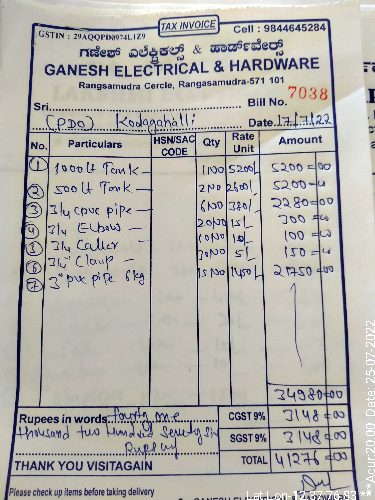 TAX INVOICE
GSTIN : 29AQQPD0974L1Z9 Cell : 9844645284
ಗಣೇಶ್ ಎಲೆಕ್ಟ್ರಿಕಲ್ಸ್ & ಹಾರ್ಡ್‌ವೇರ್ಸ್
GANESH ELECTRICAL & HARDWARE
Rangsamudra Cercle, Rangasamudra-571 101
Sri Bill No. 7038
(PDO) Kodagahalli Date 17/7/22
No. Particulars HSN/SAC CODE Qty Rate Unit Amount
1 1000 lt Tank — 1 NO 5200/- 5200=00
2 500 lt Tank — 2 NO 2600/- 5200=00
3 3/4 cpvc pipe — 6 NO 380/- 2280=00
4 3/4 Elbow — 20 NO 15/- 300=00
5 3/4 — 10 NO 10/- 100=00
6 3/4" Clamp — 30 NO 5/- 150=00
7 3" pvc pipe 6kg 15 NO 1450/- 21750=00
34980=00
Rupees in words fourty one CGST 9% 3148=00
thousand two hundred seventy six SGST 9% 3148=00
TOTAL 41276=00
THANK YOU VISITAGAIN
Please check up items before taking delivery
GANESH
Acur 20.00, Date, 25-07-2022